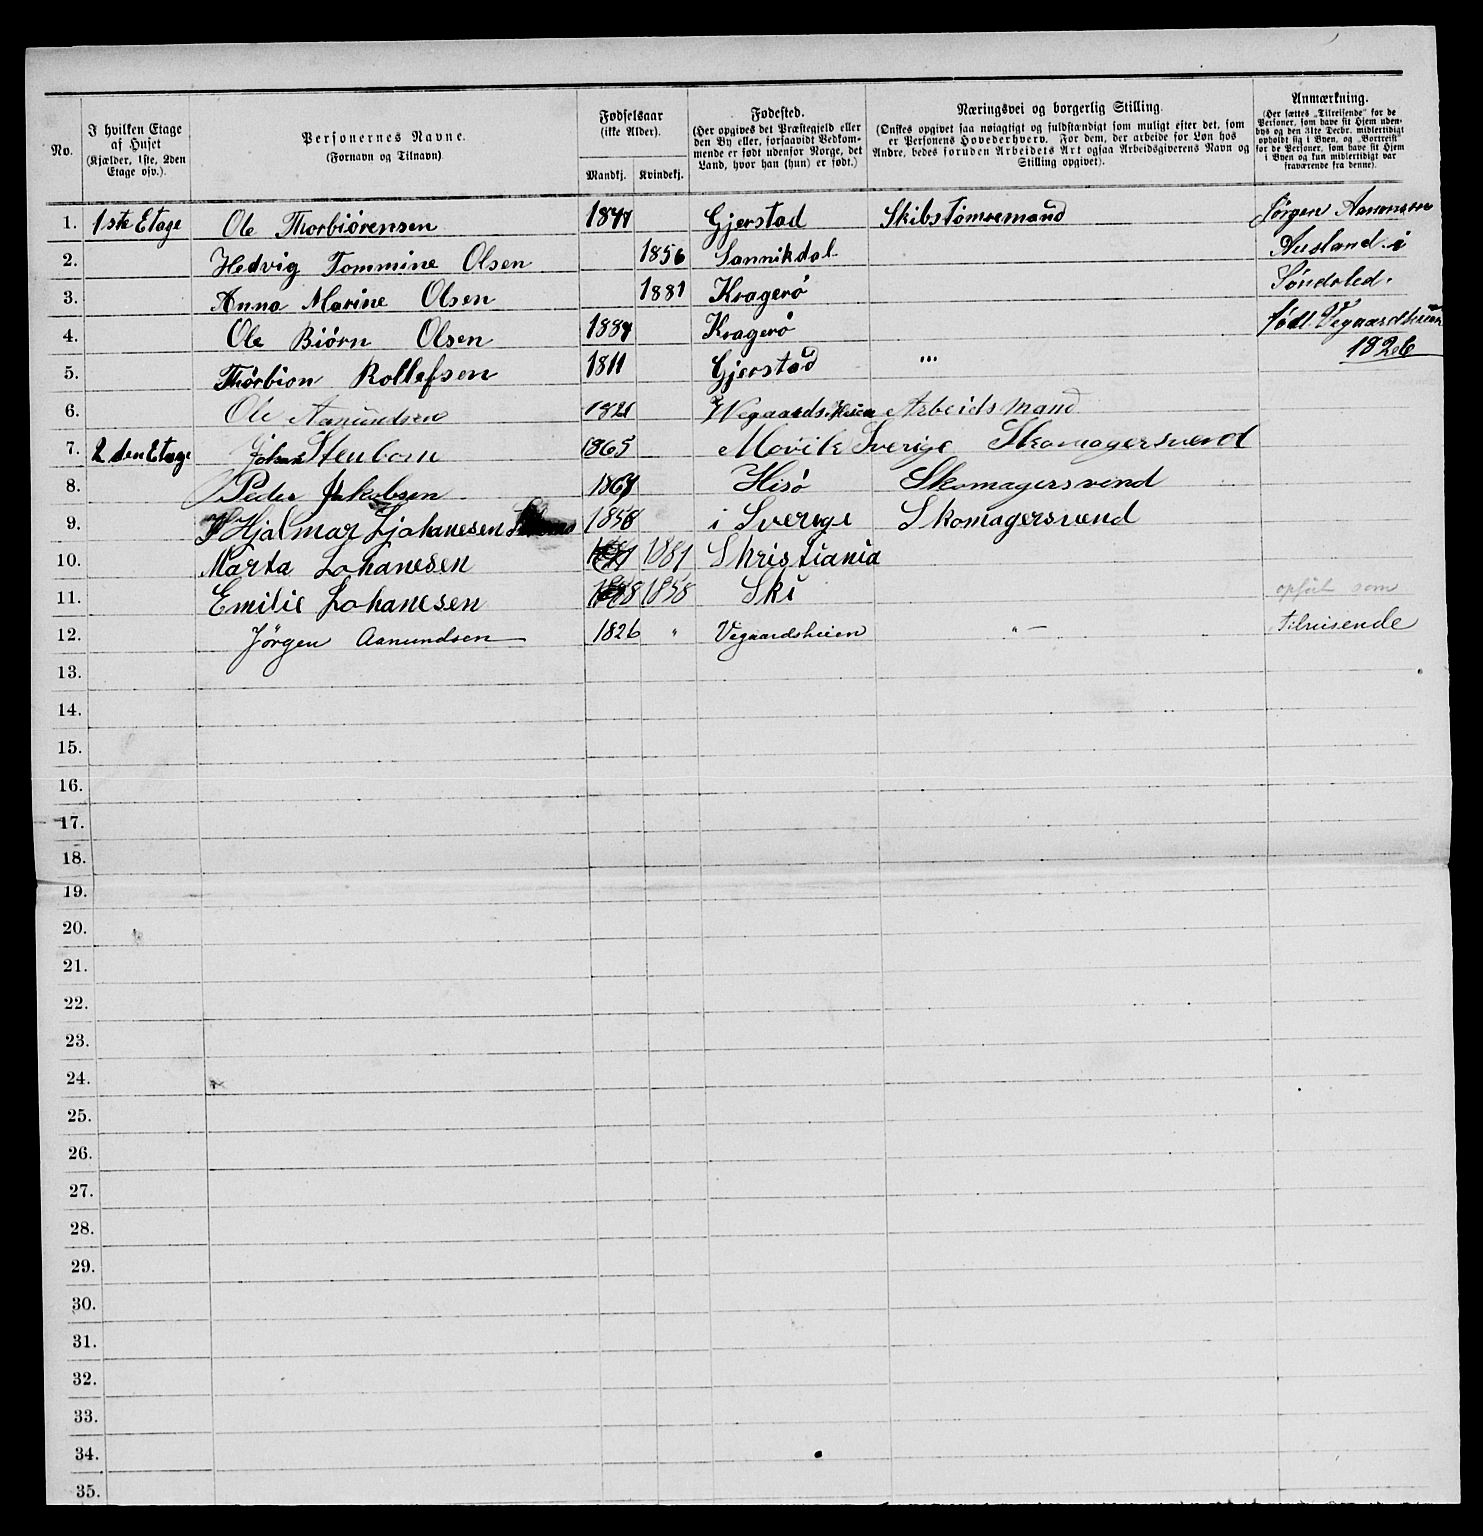 No.
I hvilken Etage af Huset (Kjælder, 1ste, 2den Etage osv.).
Personernes Navne. (Fornavn og Tilnavn)
Fødselsaar (ikke Alder).
Mandkj. Kvindekj.
Fødested. (Her opgives det Præstegjeld eller den By eller, forsaavidt Vedkommende er født udenfor Norge, det Land, hvor han (hun) er født.)
Næringsvei og borgerlig Stilling. (Ønskes opgivet saa nøiagtigt og fuldstændigt som muligt efter det, som er Personens Hovederhverv. For dem, der arbeide for Løn hos Andre, bedes foruden Arbeidets Art ogsaa Arbeidsgiverens Navn og Stilling opgivet).
Anmærkning. (Her sættes „Tilreisende" for de Personer, som have sit Hjem udenbys og den 31te Decbr. midlertidigt opholdt sig i Byen, og „Bortreist" for de Personer, som have sit Hjem i Byen og kun midlertidigt var fraværende fra denne).
1. 1ste Etage Ole Thorbiørensen Gjerstad Skibstømremand Jørgen
2. Hedvig Tommine Olsen 1856 Sannikdal Ausland i
3. Anna Marine Olsen 1881 Kragerø Søndeled.
4. Ole Biørn Olsen 1884 Kragerø født
5. Thorbion Rollefsen 1811 Gjerstad „, 1826
6. Ole Aamundsen 1821 Arbeidsmand
7. 2den Etage Johan Stenborn 1865 Movik Sverige Skomagersvend
8. Peder Jakobsen Hisø Skomagersvend
9. Hjalmar Ljohanesen 1858 i Sverige Skomagersvend
10. Marta Johanesen 1881 Skristiania
11. Emilie Johanesen 1858 Ski opført som
12. Jørgen Aamundsen 1826 „ Vegaardsheien „— tilreisende
13.
14.
15.
16.
17.
18.
19.
20.
21.
22.
23.
24.
25.
26.
27.
28.
29.
30.
31.
32.
33.
34.
35.